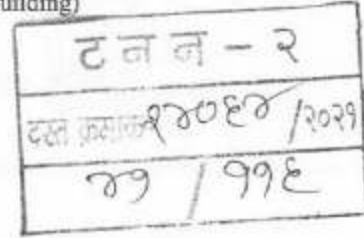 uilding)
ट न न - २
दस्त क्रमांक १४०६४ /२०२१
४१ / ११६